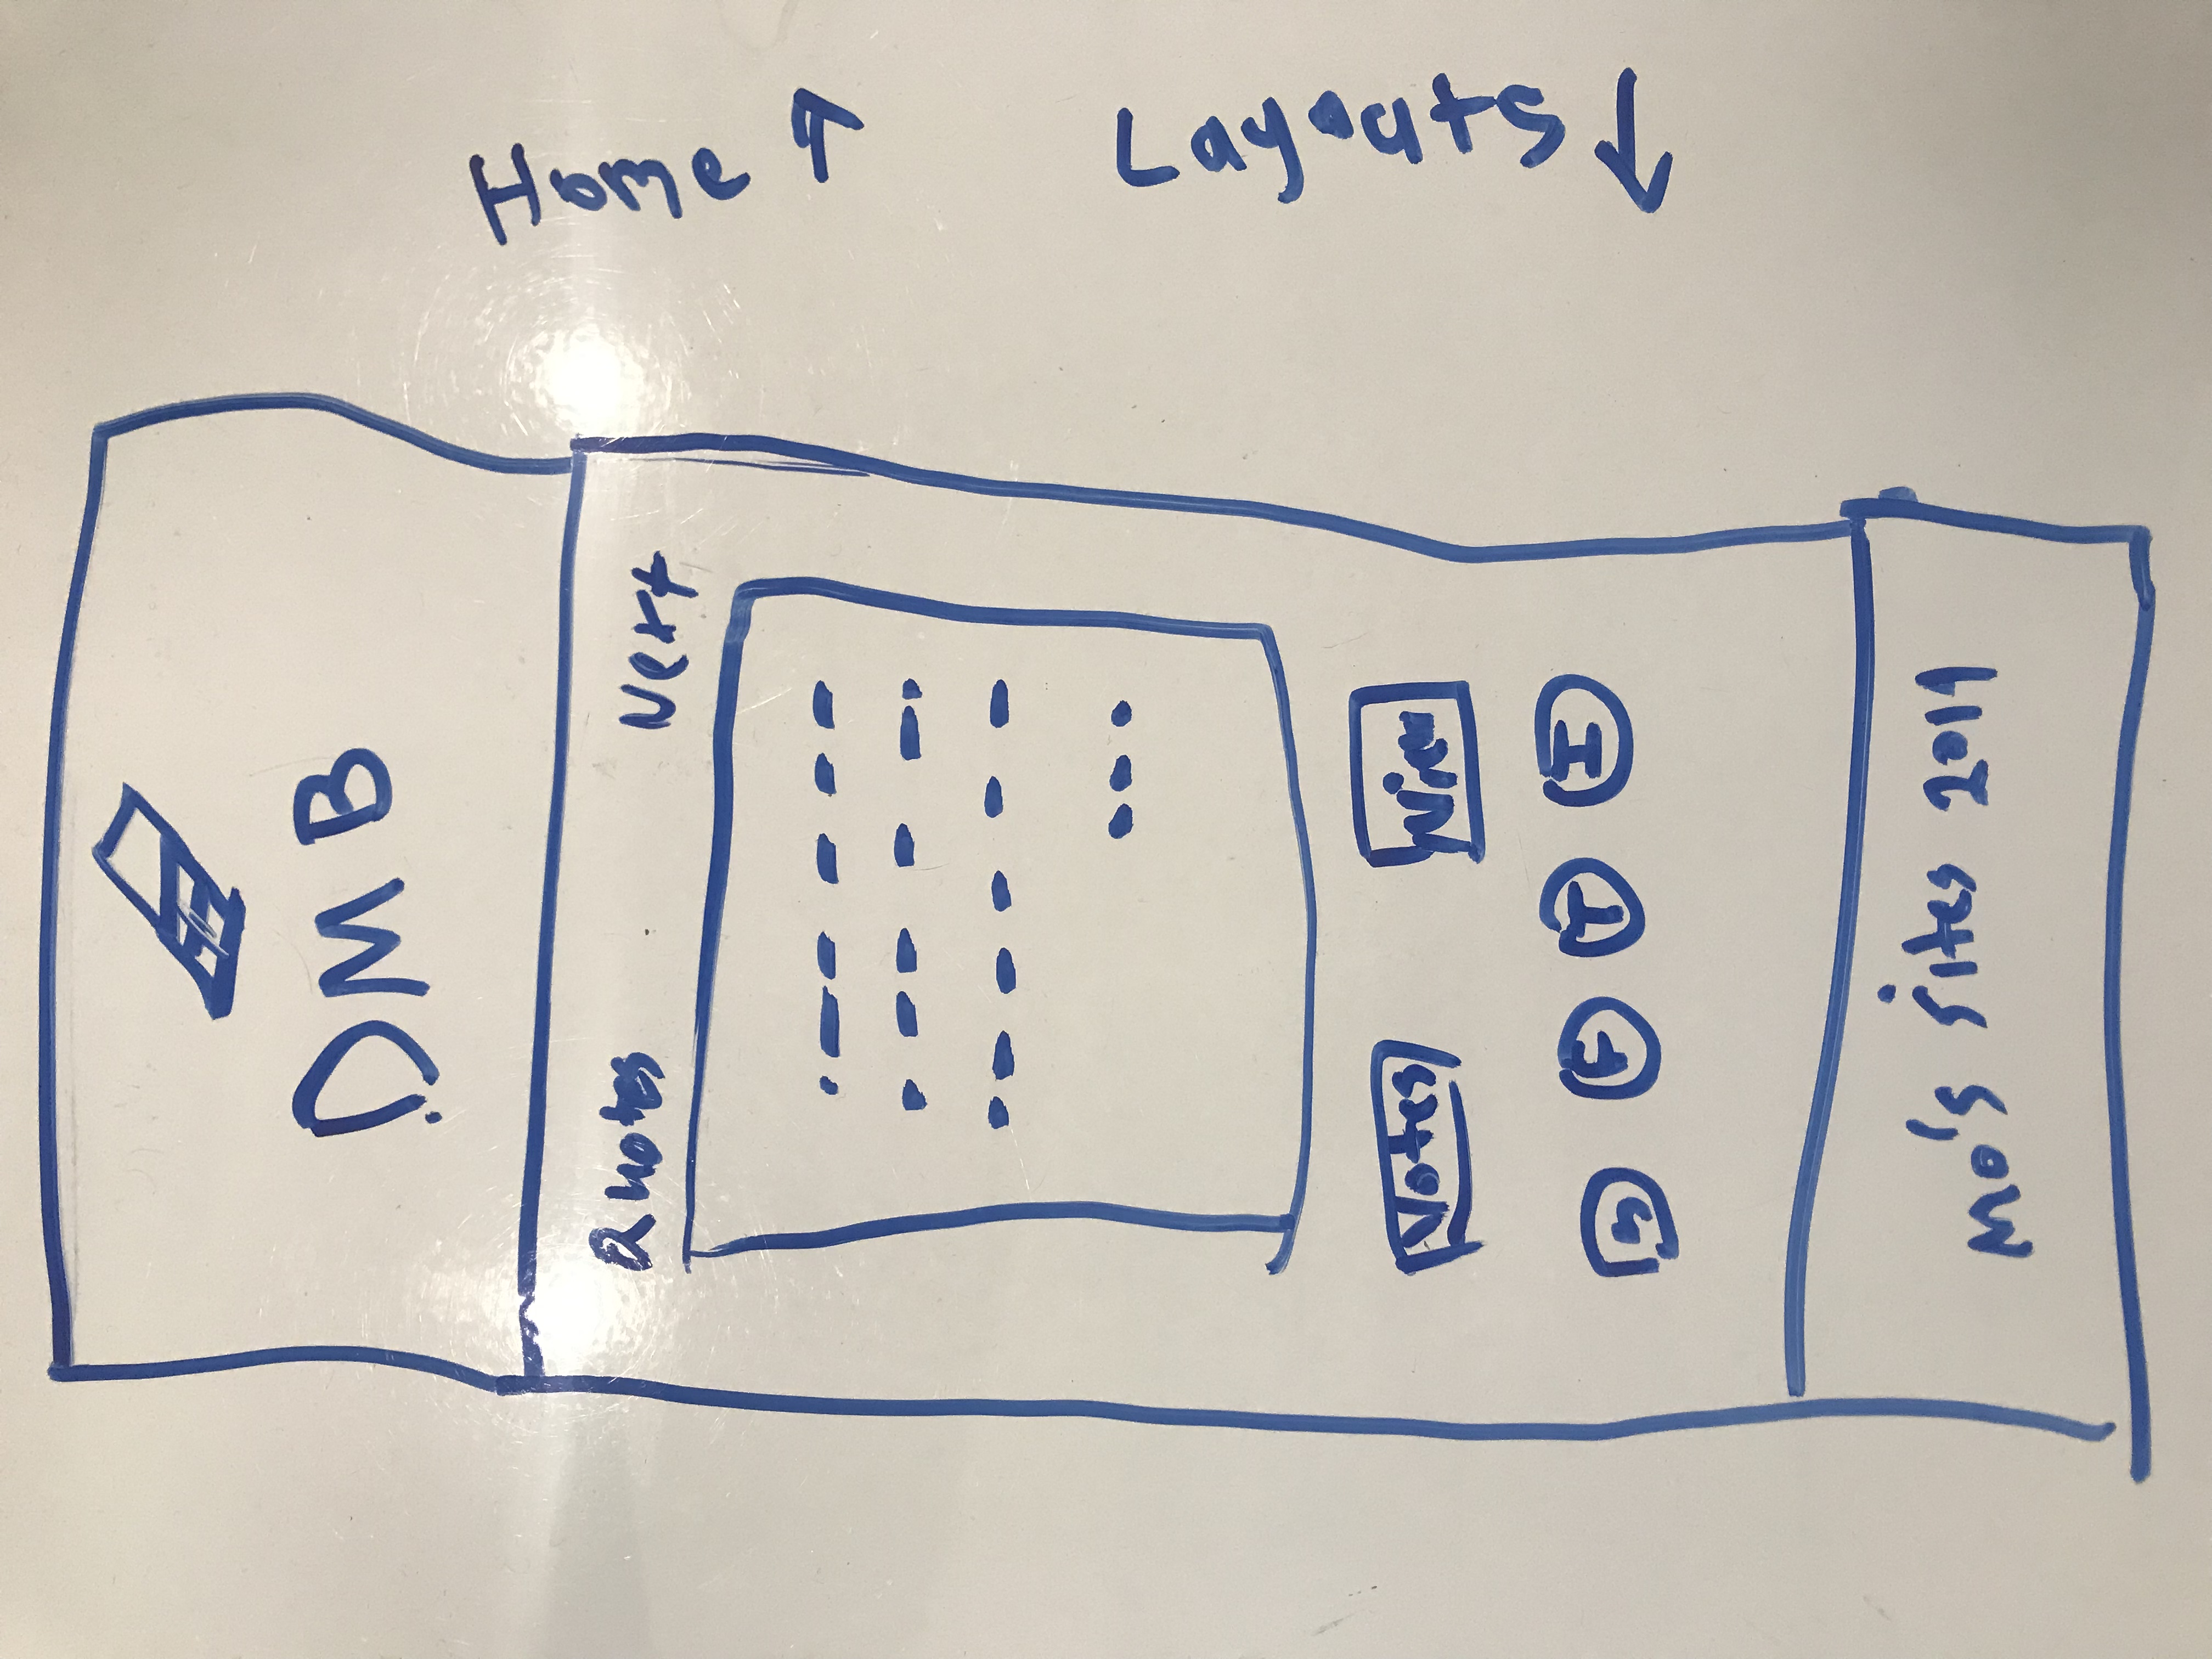 DMB
Quotes Next
Votes View
S F T I
Mo's sites 2019
Home ↑
Layouts ↓